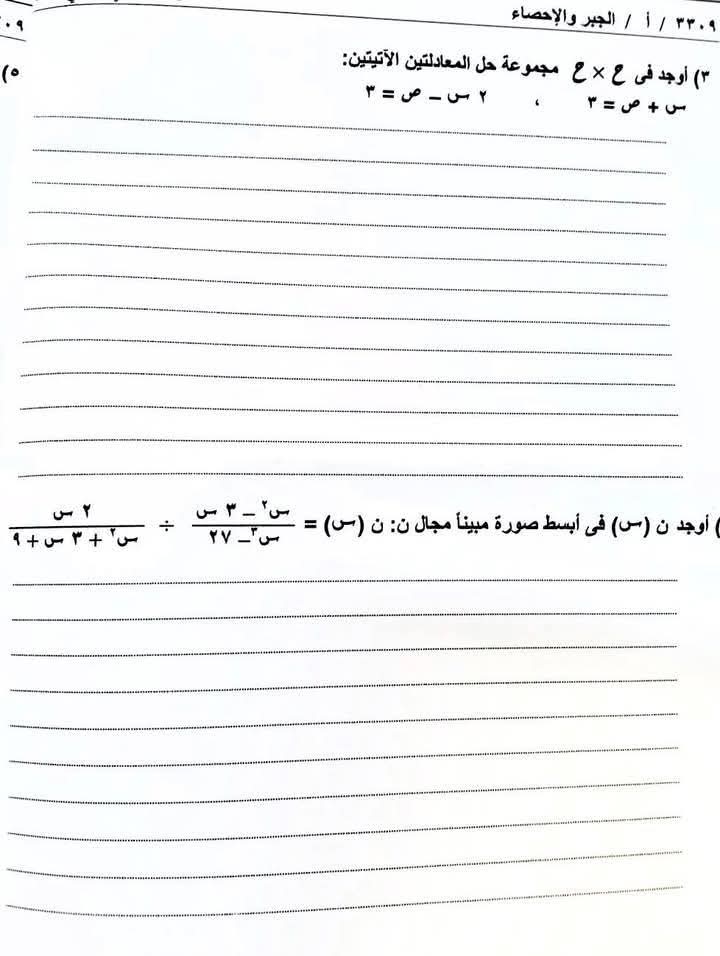 ٣٣٠٩ / أ / الجبر والإحصاء
٠٩
٣) أوجد فى ح × ح مجموعة حل المعادلتين الآتيتين:
س + ص = ٣ ، ٢ س − ص = ٣
٥)
) أوجد ن (س) فى أبسط صورة مبيناً مجال ن: ن (س) = (س² − ٣ س)/(س³ − ٢٧) ÷ (٢ س)/(س² + ٣ س + ٩)